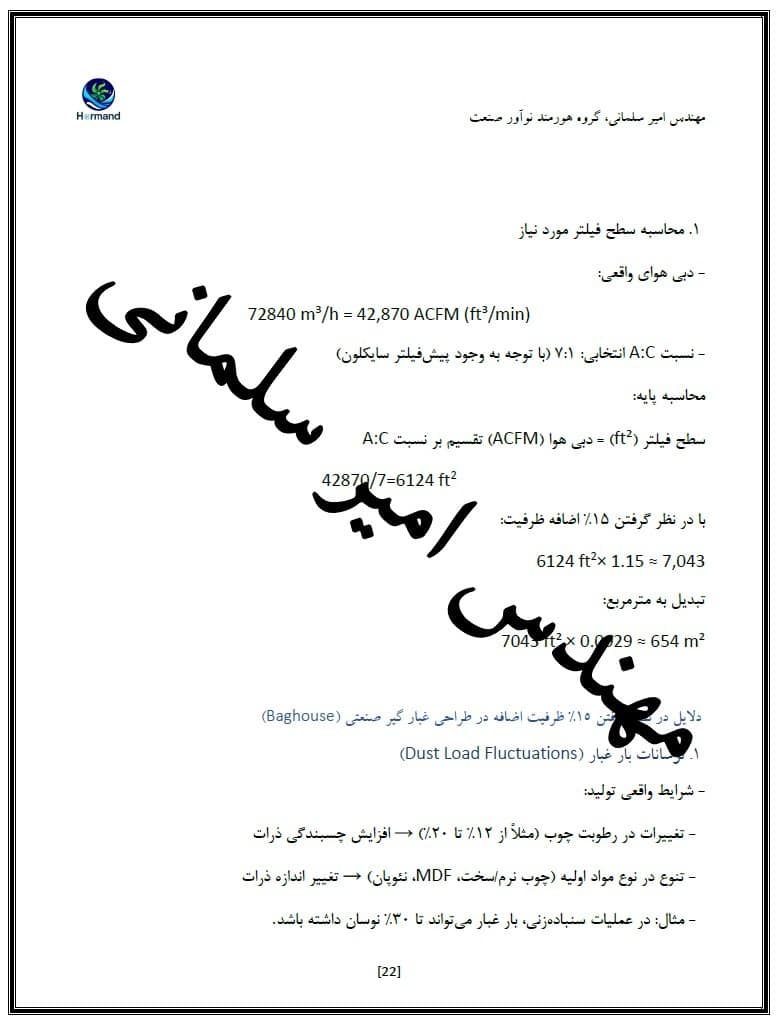 Hormand
مهندس امیر سلمانی، گروه هورمند نوآور صنعت
۱. محاسبه سطح فیلتر مورد نیاز
- دبی هوای واقعی:
72840 m³/h = 42,870 ACFM (ft³/min)
- نسبت A:C انتخابی: ۷:۱ (با توجه به وجود پیش‌فیلتر سایکلون)
محاسبه پایه:
سطح فیلتر (ft²) = دبی هوا (ACFM) تقسیم بر نسبت A:C
42870/7=6124 ft²
با در نظر گرفتن ۱۵٪ اضافه ظرفیت:
6124 ft²× 1.15 ≈ 7,043
تبدیل به مترمربع:
7043 ft² × 0.0929 ≈ 654 m²
دلایل در نظر گرفتن ۱۵٪ ظرفیت اضافه در طراحی غبار گیر صنعتی (Baghouse)
۱. نوسانات بار غبار (Dust Load Fluctuations)
- شرایط واقعی تولید:
- تغییرات در رطوبت چوب (مثلاً از ۱۲٪ تا ۲۰٪) → افزایش چسبندگی ذرات
- تنوع در نوع مواد اولیه (چوب نرم/سخت، MDF، نئوپان) → تغییر اندازه ذرات
- مثال: در عملیات سنباده‌زنی، بار غبار می‌تواند تا ۳۰٪ نوسان داشته باشد.
[22]
مهندس امیر سلمانی